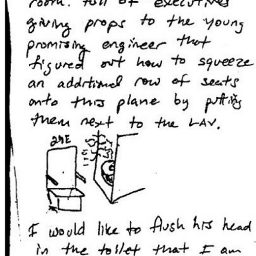 room. full of executives
giving props to the young
promising engineer that
figured out how to squeeze
an additional row of seats
onto this plane by putting
them next to the LAV.
29E
I would like to flush his head
in the toilet that I am